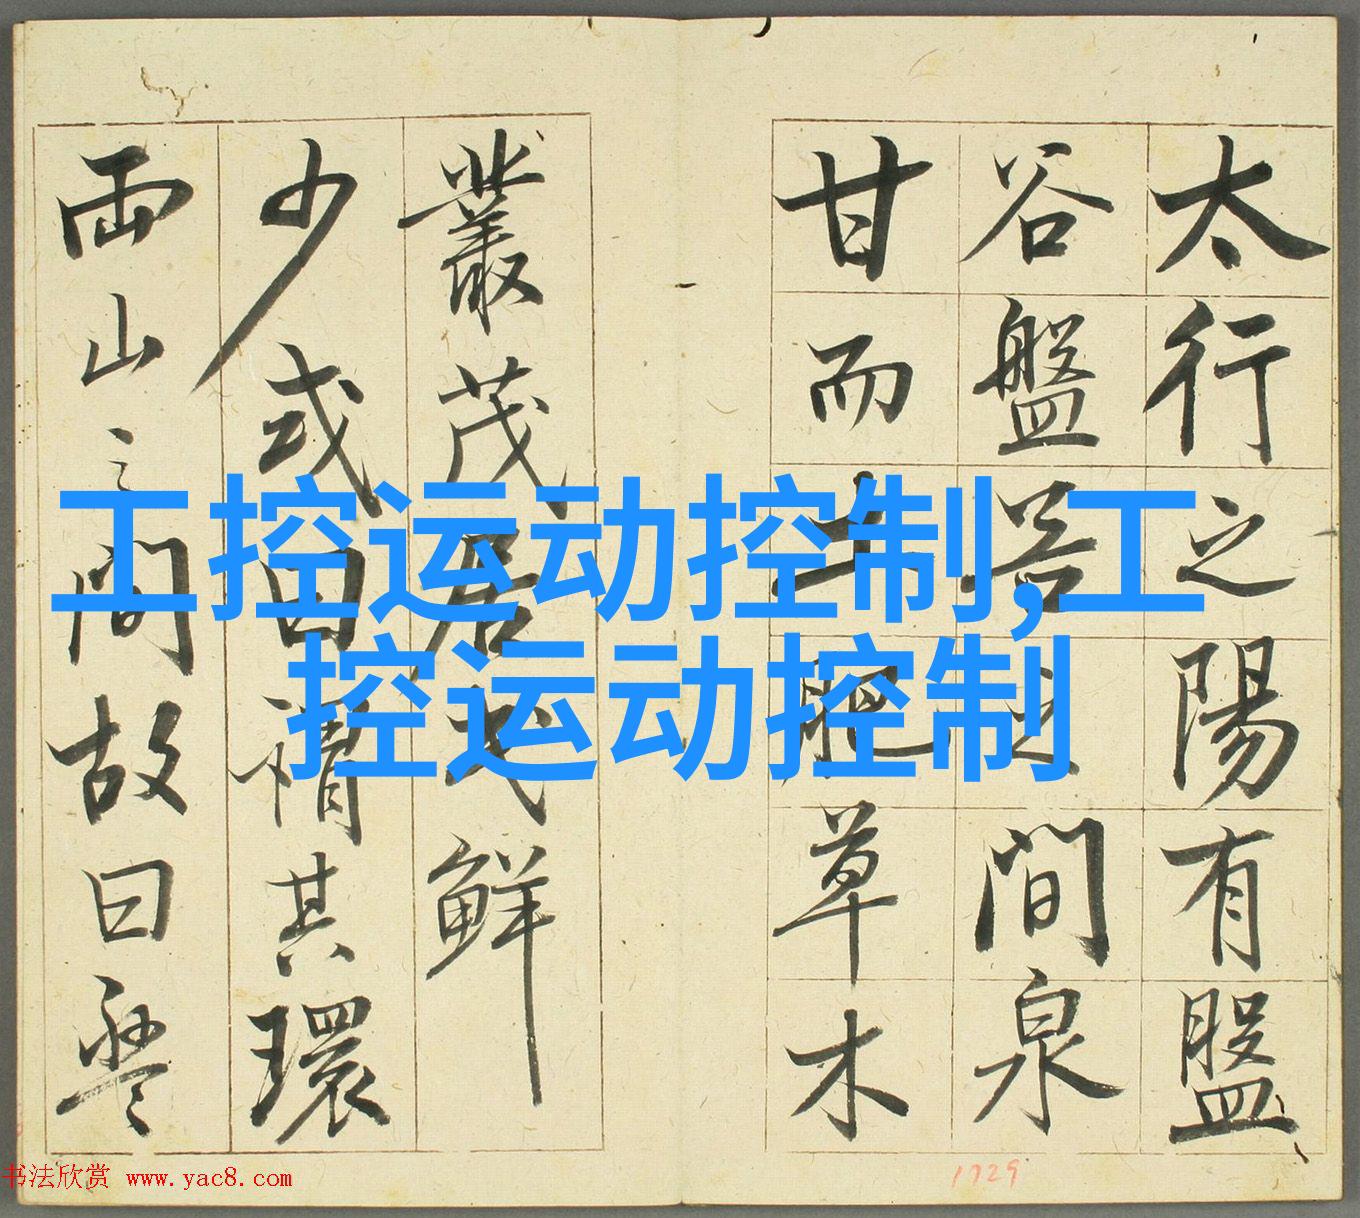 太行之陽有盤
谷盤谷之間泉
甘而土肥草木
叢茂居民鮮
少或曰謂其環
兩山之間故曰
工控运动控制,工
控运动控制
书法欣赏 www.yac8.com
1729